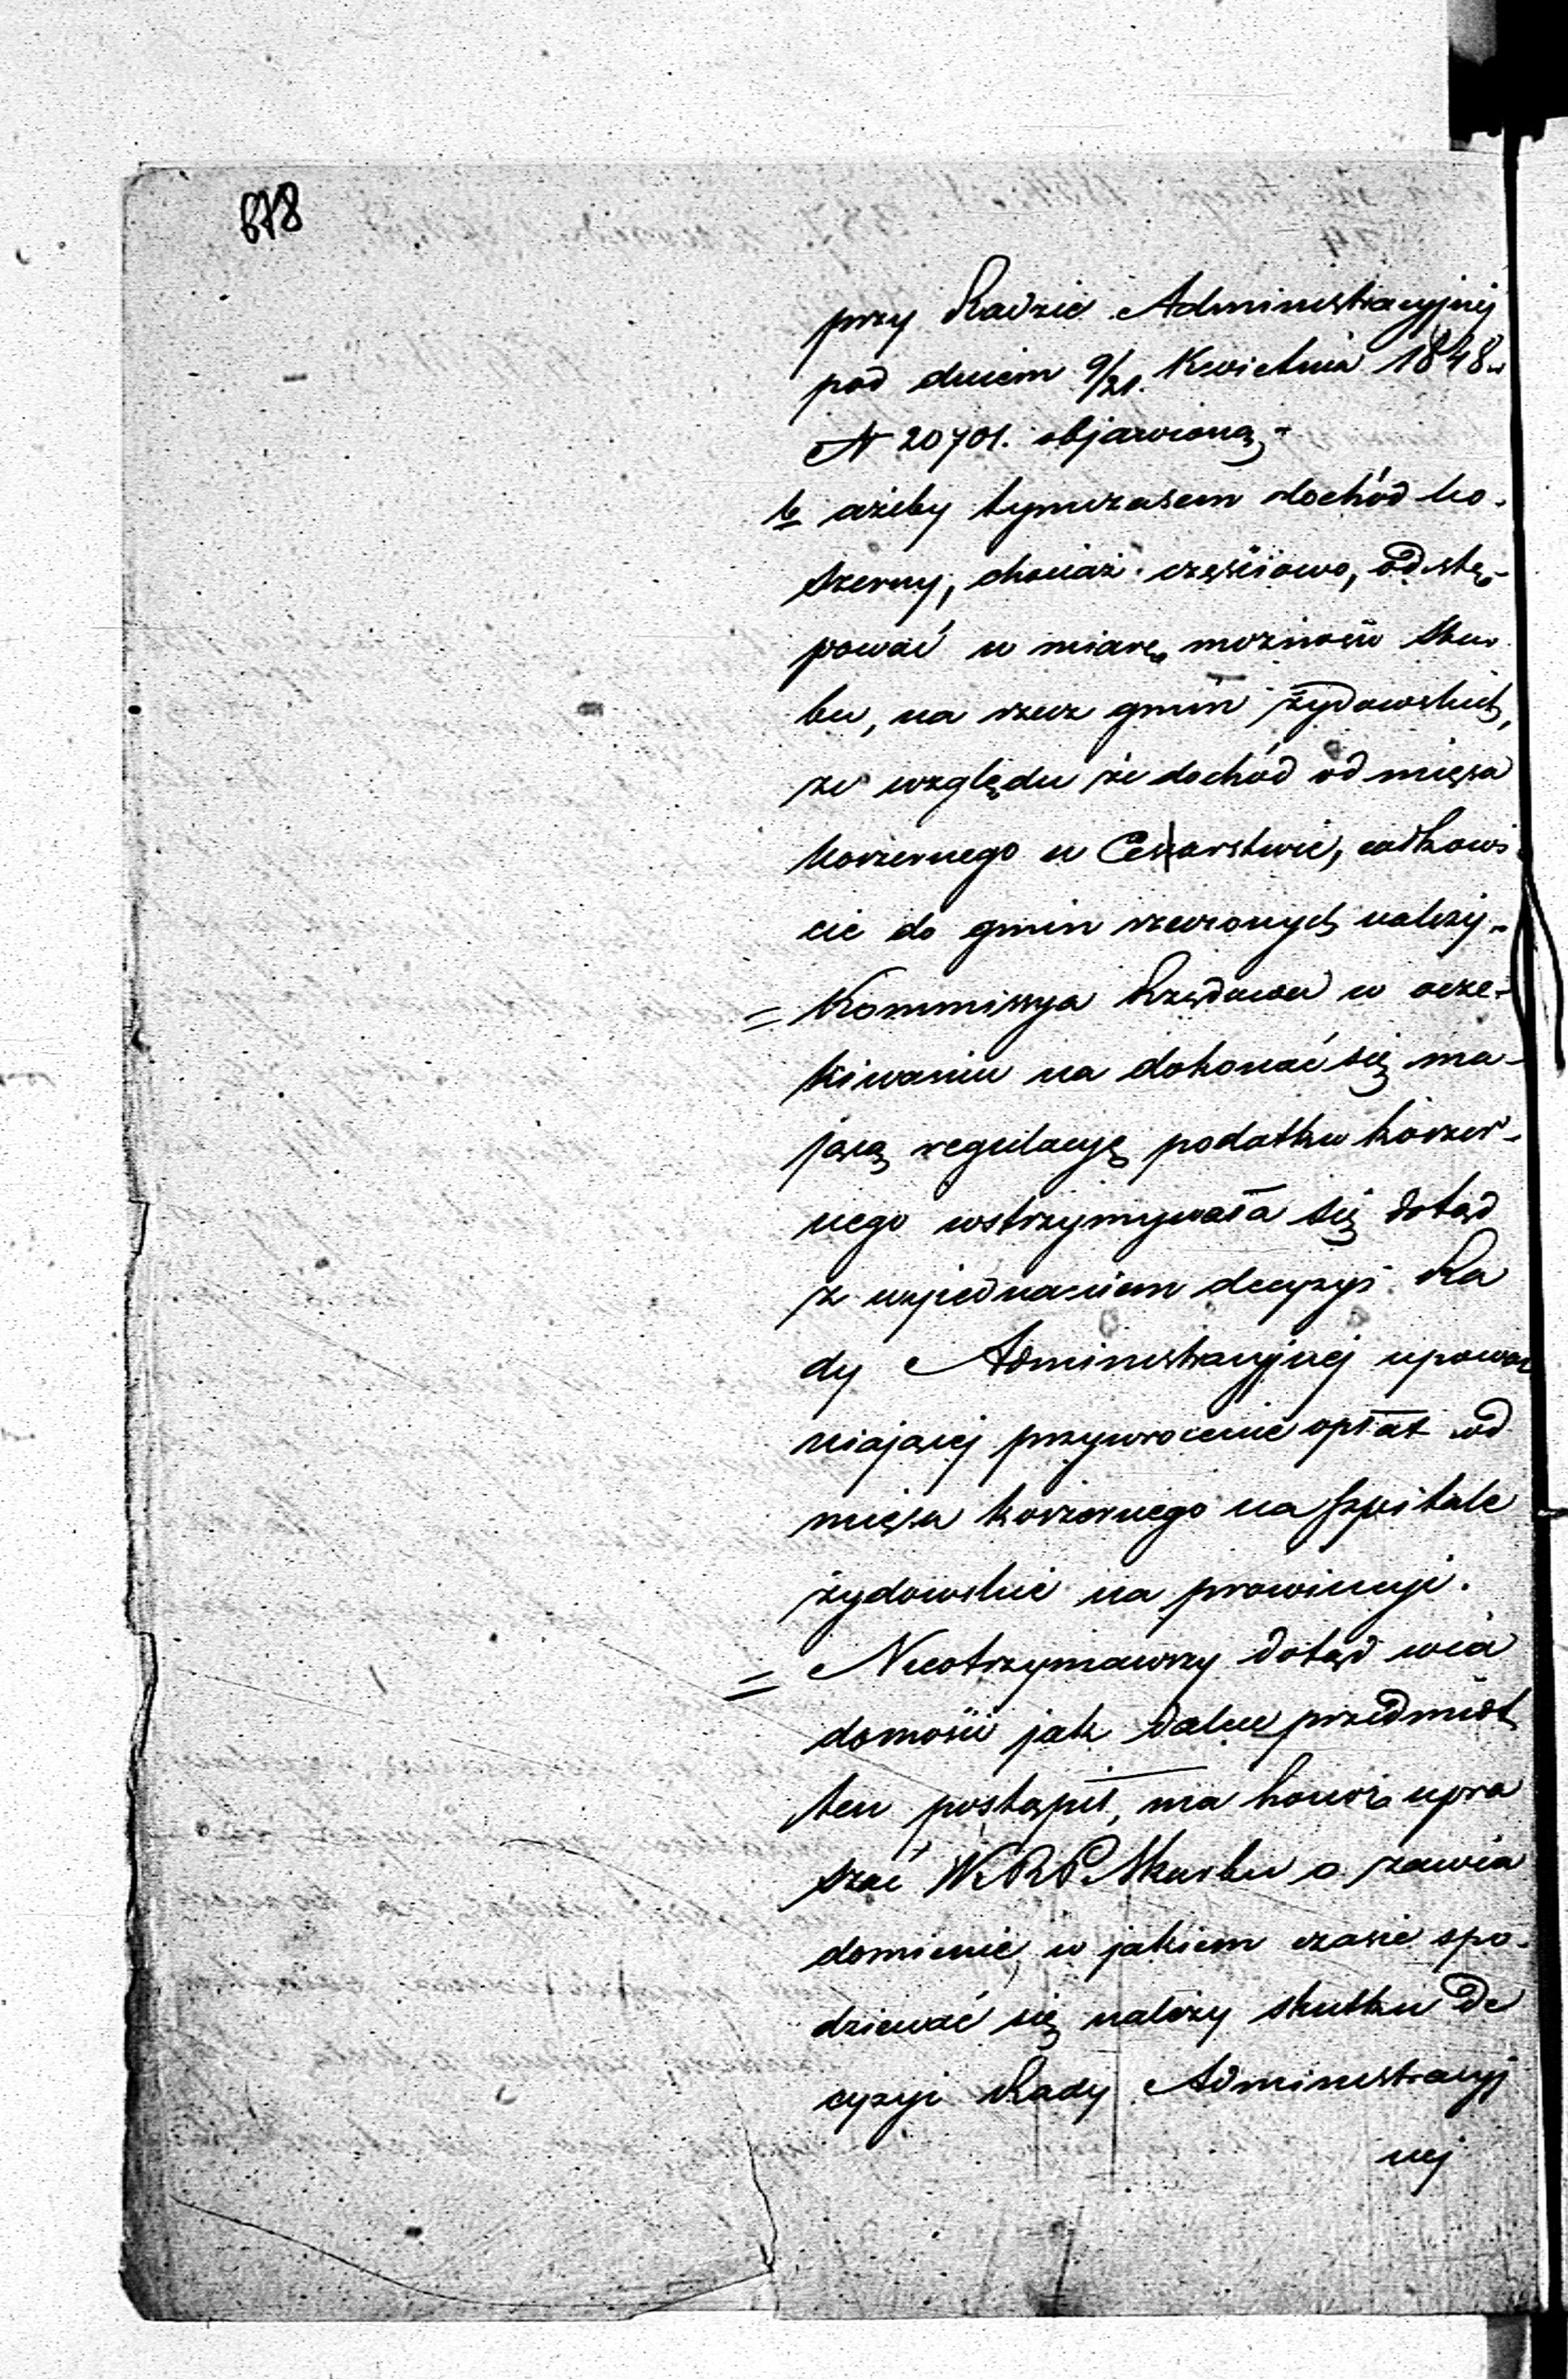 678
przy Radzie Administracyjnej
pod dniem 9/21. Kwietnia 1848.
N 20701. objawioną-
b ażeby tymczasem dochód ko-
szerny, chociaż częściowo, odstę-
pować w miarę możności Skar
bu, na rzecz gmin żydowskich,
ze względu że dochód od mięsa
koszernego w Cesarstwie, całkowi
cie do gmin rzeczonych należy.
= Kommissya Rządowa w ocze-
kiwaniu na dokonać się ma-
jącą regulacyę podatku koszer-
nego wstrzymywała się dotąd
z wyjednaniem decyzyi Ra
dy Administracyjnej upoważ
niającej przywrocenie opłat od
mięsa koszernego na szpitale
żydowskie na prowincyi.
= Nieotrzymawszy dotąd wia
domości jak dalece przedmiot
ten postąpił, ma honor upra
szać K.R.P. Skarbu o zawia
domienie, w jakiem czasie spo-
dziewać się należy skutku De
cyzyi Rady Administracyj
nej